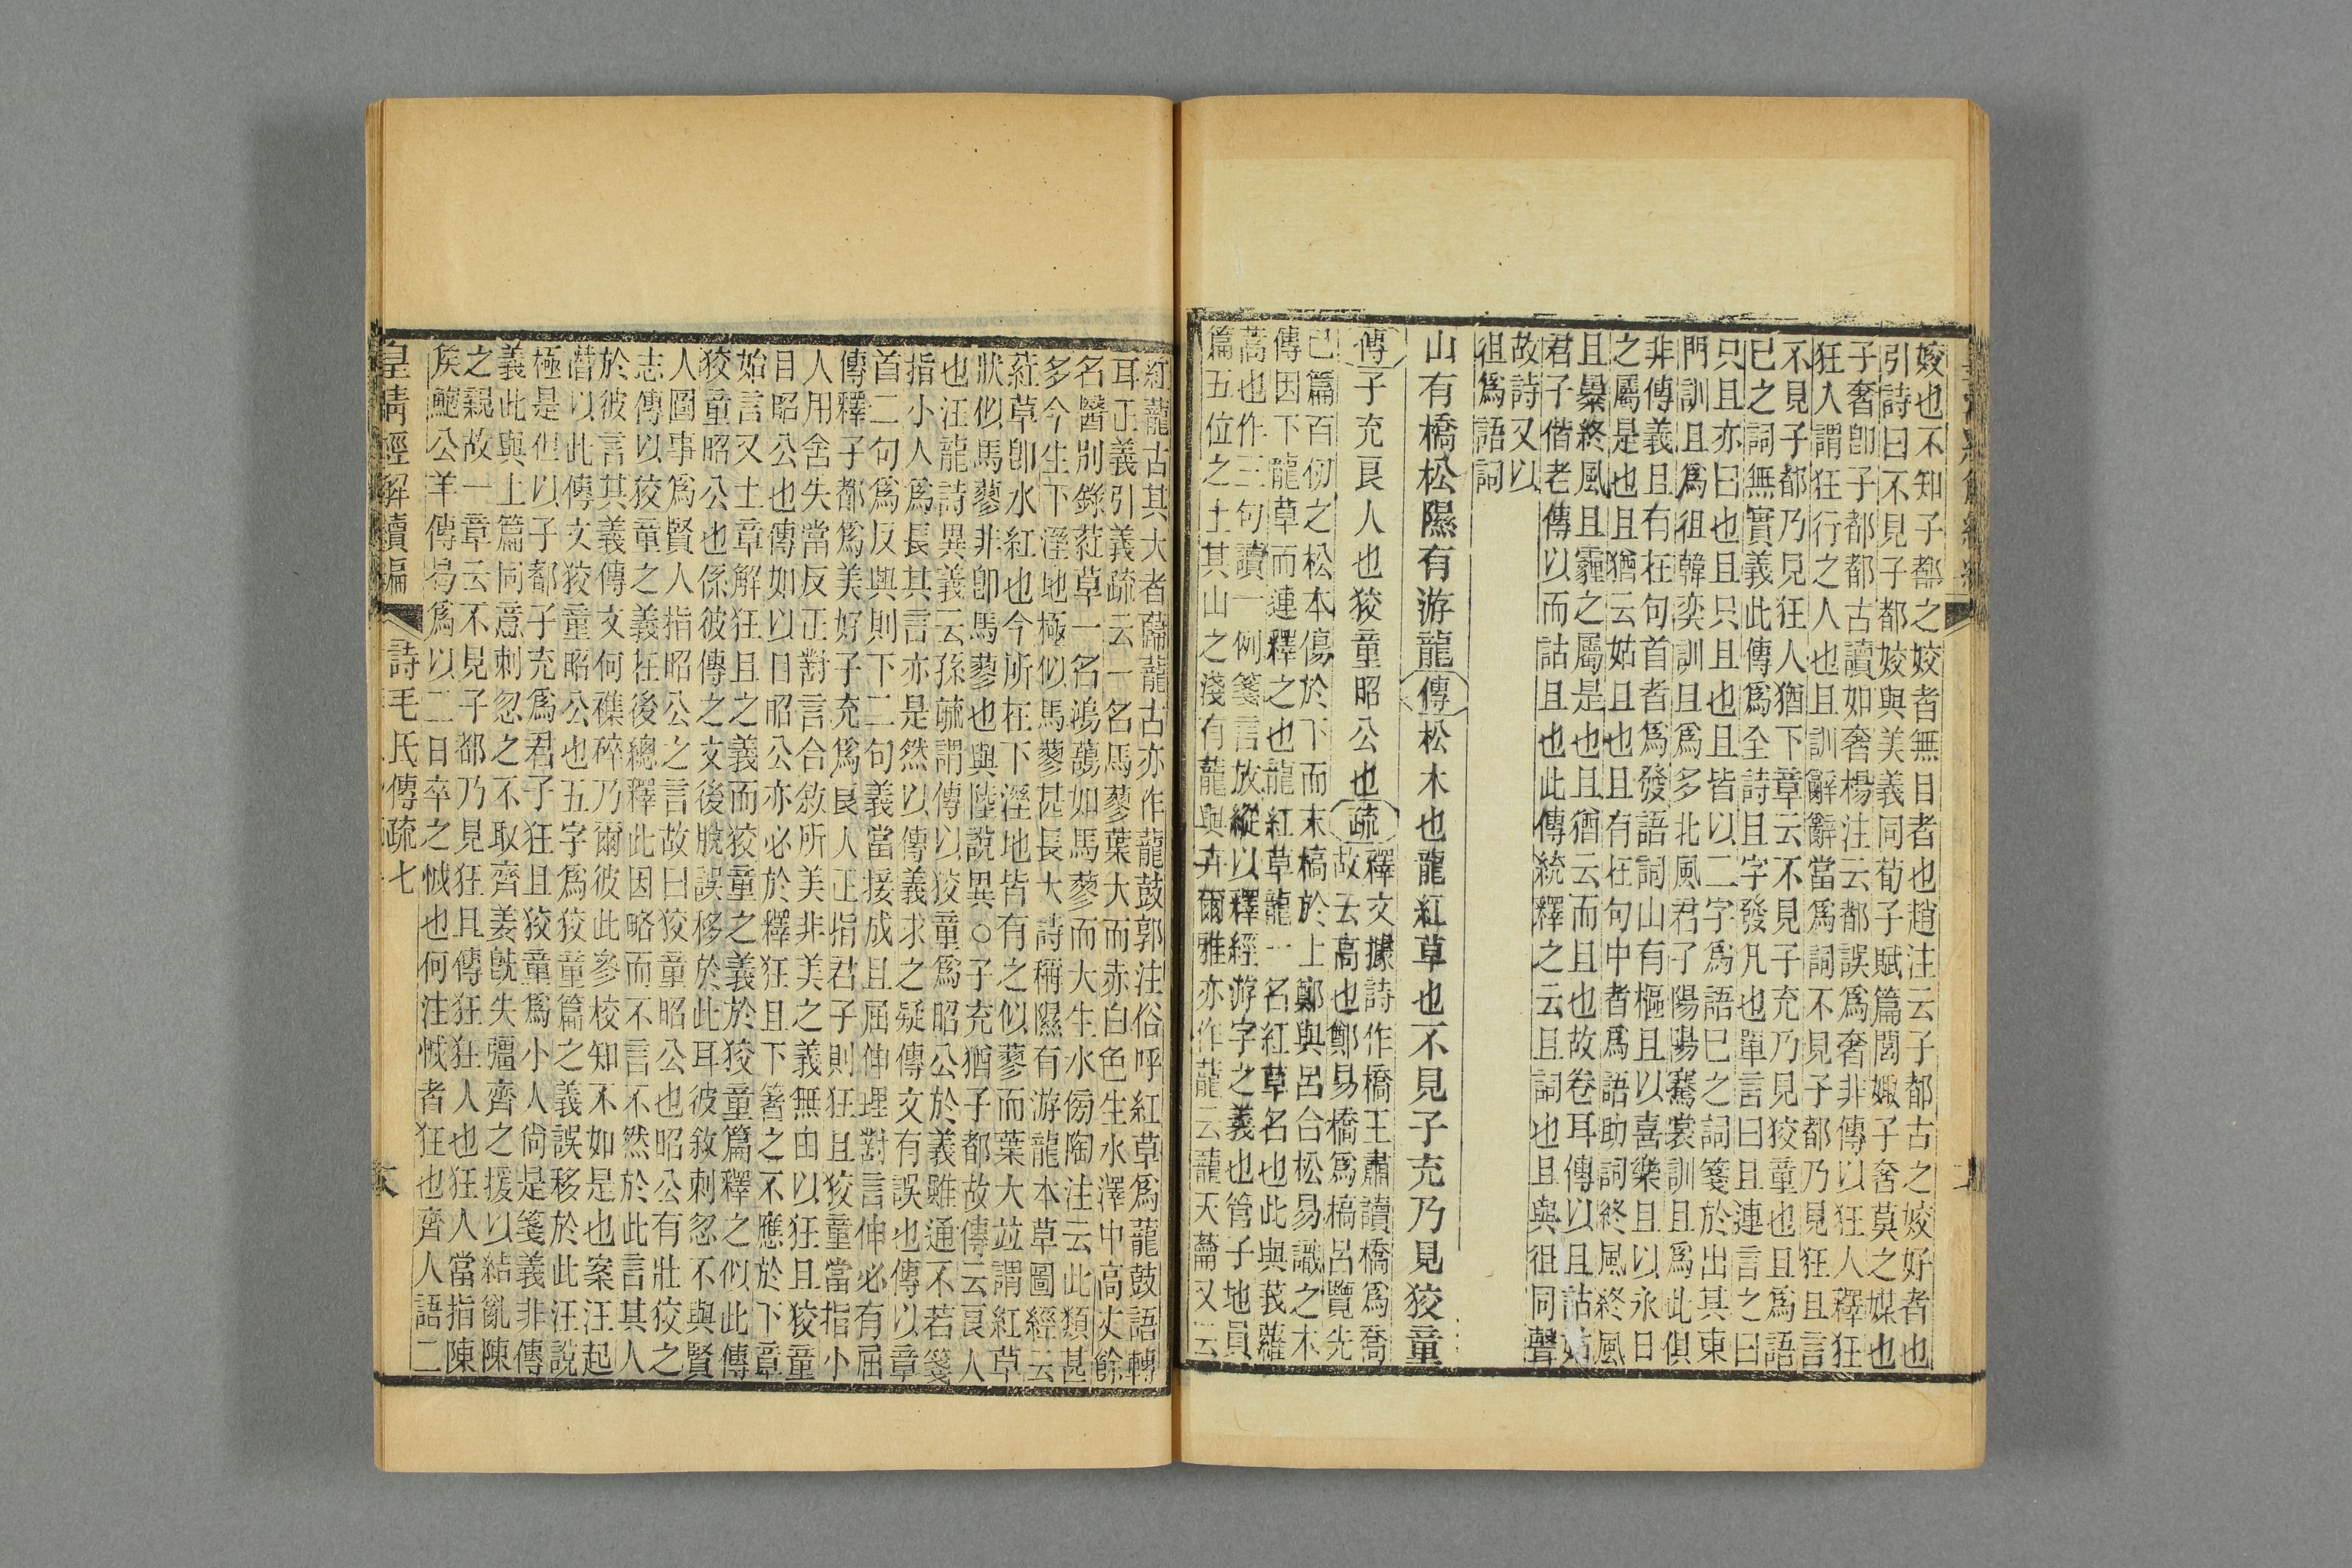 姣也不知子都之姣者無目者也趙注云子都古之姣好者也
引詩曰不見子都姣與美義同荀子賦篇閭娵子奢莫之媒也
子奢卽子都都古讀如奢楊注云都誤爲奢非傳以狂人釋狂
狂人謂狂行之人也且訓辭辭當爲詞不見子都乃見狂且言
不見子都乃見狂人猶下章云不見子充乃見狡童也且爲語
已之詞無實義此傳爲全詩且字發凡也單言曰且連言之曰
只且亦曰也且只且也且皆以二字爲語已之詞箋於出其東
門訓且爲徂韓奕訓且爲多北風君子陽陽騫裳訓且爲此俱
非傳義且有在句首者爲發語詞山有樞且以喜樂且以永日
之屬是也且猶云姑且也且有在句中者爲語助詞終風終風
且暴終風且霾之屬是也且猶云而且也故卷耳傳以且詁姑
君子偕老傳以而詁且也此傳統釋之云且詞也且與徂同聲
故詩又以
徂爲語詞
山有橋松隰有游龍傳松木也龍紅草也不見子充乃見狡童
傳子充良人也狡童昭公也疏釋文據詩作橋王肅讀橋爲喬
故云高也鄭易橋爲槁呂覽先
己篇百仞之松本傷於下而末槁於上鄭與呂合松易識之木
傳因下龍草而連釋之也龍紅草龍一名紅草名也此與莪蘿
蒿也作三句讀一例箋言放縱以釋經游字之義也管子地員
篇五位之土其山之淺有蘢與斥爾雅亦作蘢云蘢天蘥又云
紅蘢古其大者蘬蘢古亦作龍鼓郭注俗呼紅草爲蘢鼓語轉
耳正義引義疏云一名馬蓼葉大而赤白色生水澤中高丈餘
名醫別錄葒草一名鴻䕡如馬蓼而大生水傍陶注云此類甚
多今生下溼地極似馬蓼甚長大詩稱隰有游龍本草圖經云
葒草卽水紅也今所在下溼地皆有之似蓼而葉大竝謂紅草
狀似馬蓼非卽馬蓼也與陸說異○子充猶子都故傳云良人
也汪龍詩異義云孫毓謂傳以狡童爲昭公於義雖通不若箋
指小人爲長其言亦是然以傳義求之疑傳文有誤也傳以章
首二句爲反興則下二句義當援成且屈伸理對言伸必有屈
傳釋子都爲美好子充爲良人正指君子則狂且狡童當指小
人用舍失當反正對言合敘所美非美之義無由以狂且狡童
目昭公也傳如以目昭公亦必於釋狂且下箸之不應於下章
始言又士章解狂且之義而狡童之義於狡童篇釋之似此傳
狡童昭公也係彼傳之文後脫誤移於此耳彼敘刺忽不與賢
人圖事爲賢人指昭公之言故曰狡童昭公也昭公有壯狡之
志傳以狡童之義在後總釋此因略而不言不然於此言其人
於彼言其義傳文何襍碎乃爾彼此參校知不如是也案汪起
潛以此傳文狡童昭公也五字爲狡童篇之義誤移於此汪說
極是但以子都子充爲君子狂且狡童爲小人尙是箋義非傳
義此與上篇同意刺忽之不取齊姜旣失彊齊之援以結亂陳
之親故一章云不見子都乃見狂且傳狂狂人也狂人當指陳
矦鮑公羊傳曷爲以二日卒之怴也何注怴者狂也齊人語二
皇淸經解續編
詩毛氏傳疏七